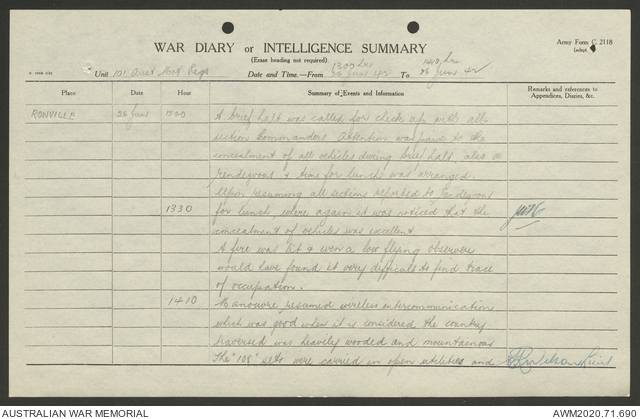 Army Form C. 2118
(adapted)
WAR DIARY or INTELLIGENCE SUMMARY
(Erase heading not required)
Unit 101 Aust Mot Regt Date and Time.—From 1300 hrs 26 June 42 To 1410 hrs 26 June 42
Place Date Hour Summary of Events and Information Remarks and references to Appendices, Diaries, &c.
RONVILLE 26 June 1300 A brief halt was called for check up with all
section commanders. Attention was paid to the
concealment of all vehicles during brief halt, also a
rendezvous & time for lunch was arranged.
Upon resuming all sections reported to rendezvous
1330 for lunch, where again it was noticed that the
concealment of vehicles was excellent.
A fire was lit & even a low flying observer
would have found it very difficult to find trace
of occupation.
1410 Manouvre resumed wireless intercommunication
which was good when it is considered the country
traversed was heavily wooded and mountainous
The "108" sets were carried in open utilities and
Lieut
AUSTRALIAN WAR MEMORIAL
AWM2020.71.690